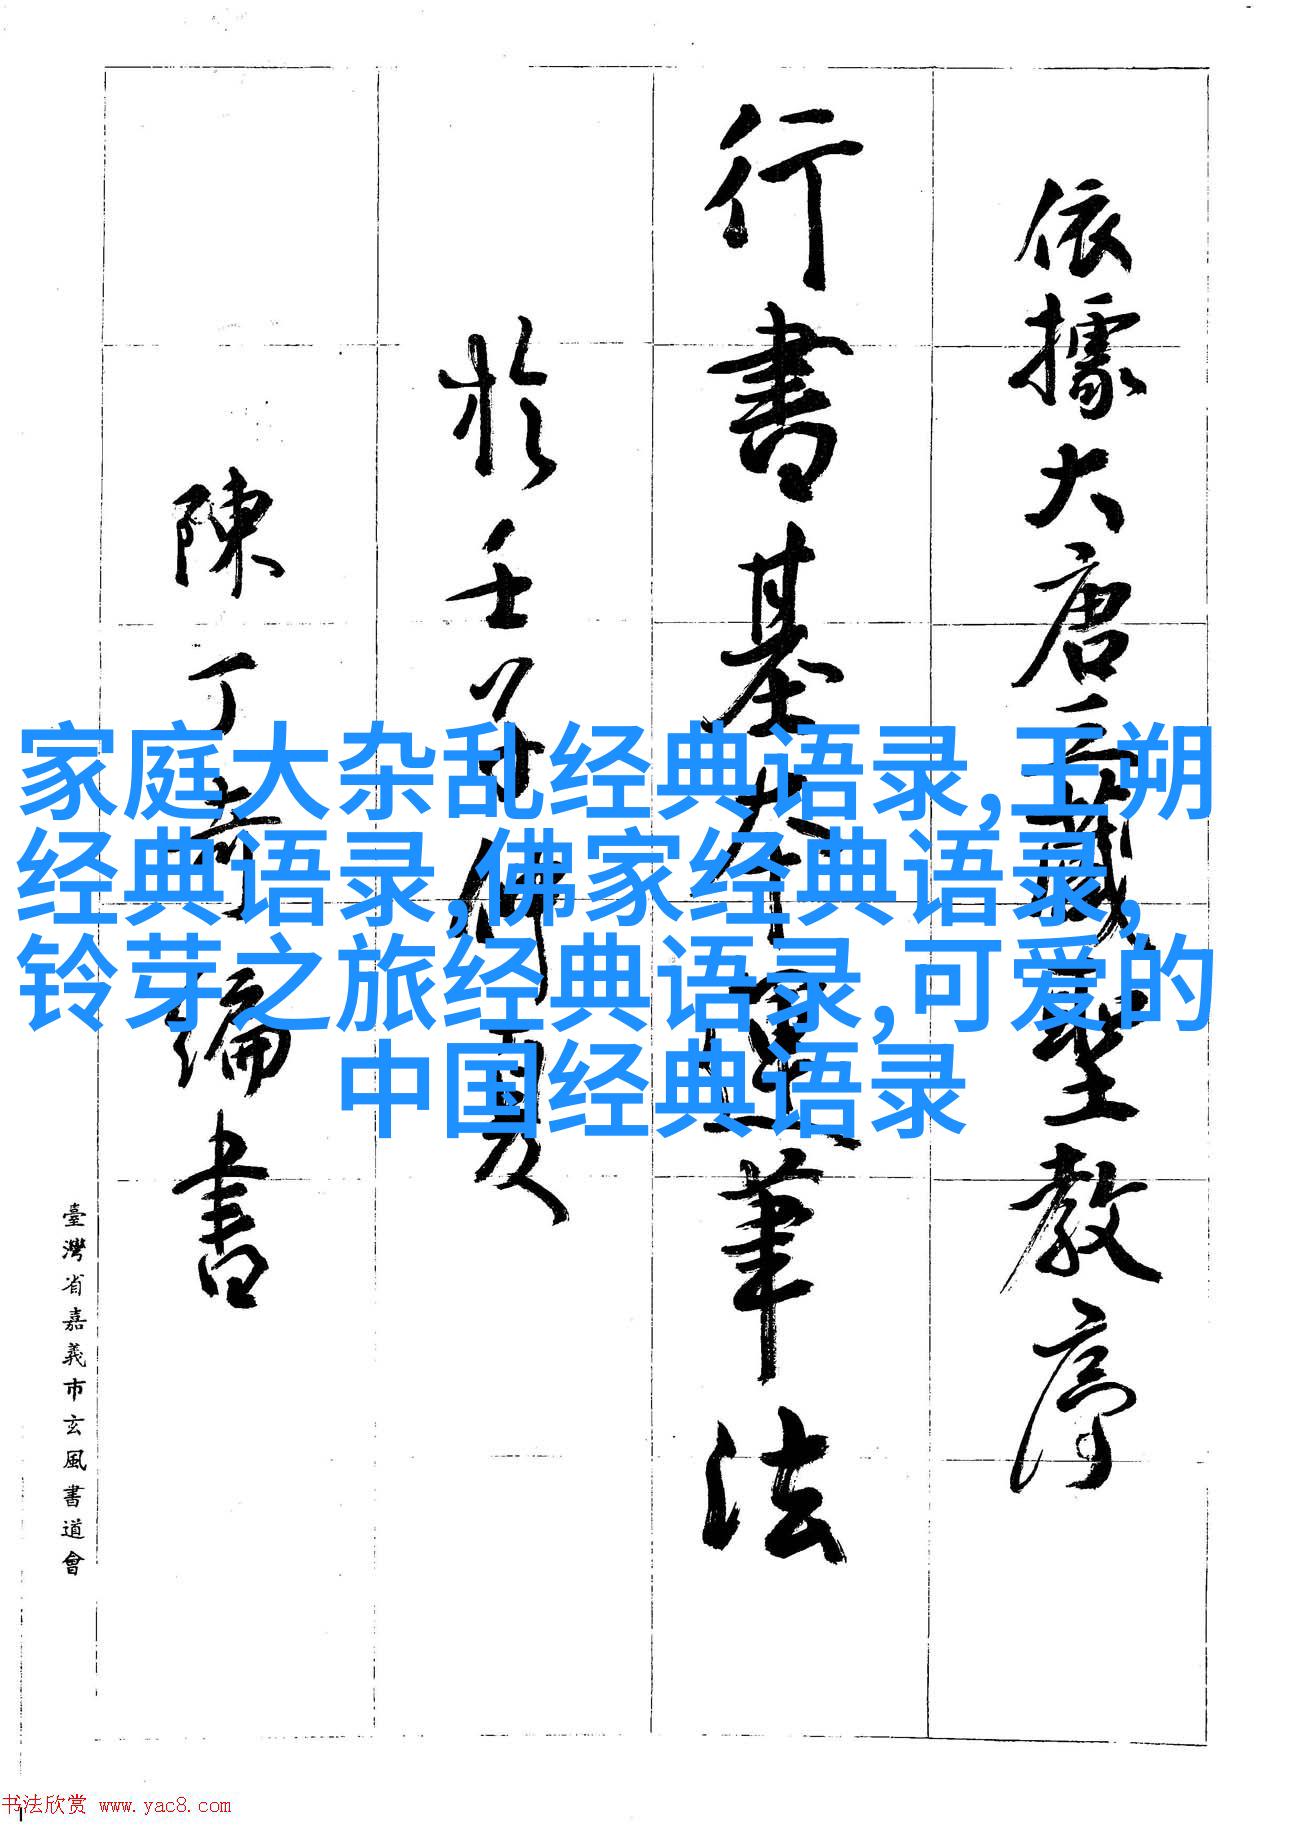 依據大唐三藏聖教序
行書基本運筆法
於壬仲夏
陳丁奇編書
臺灣省嘉義市玄風書道會
家庭大杂乱经典语录,王朔
经典语录,佛家经典语录,
铃芽之旅经典语录,可爱的
中国经典语录
书法欣赏 www.yac8.com
1